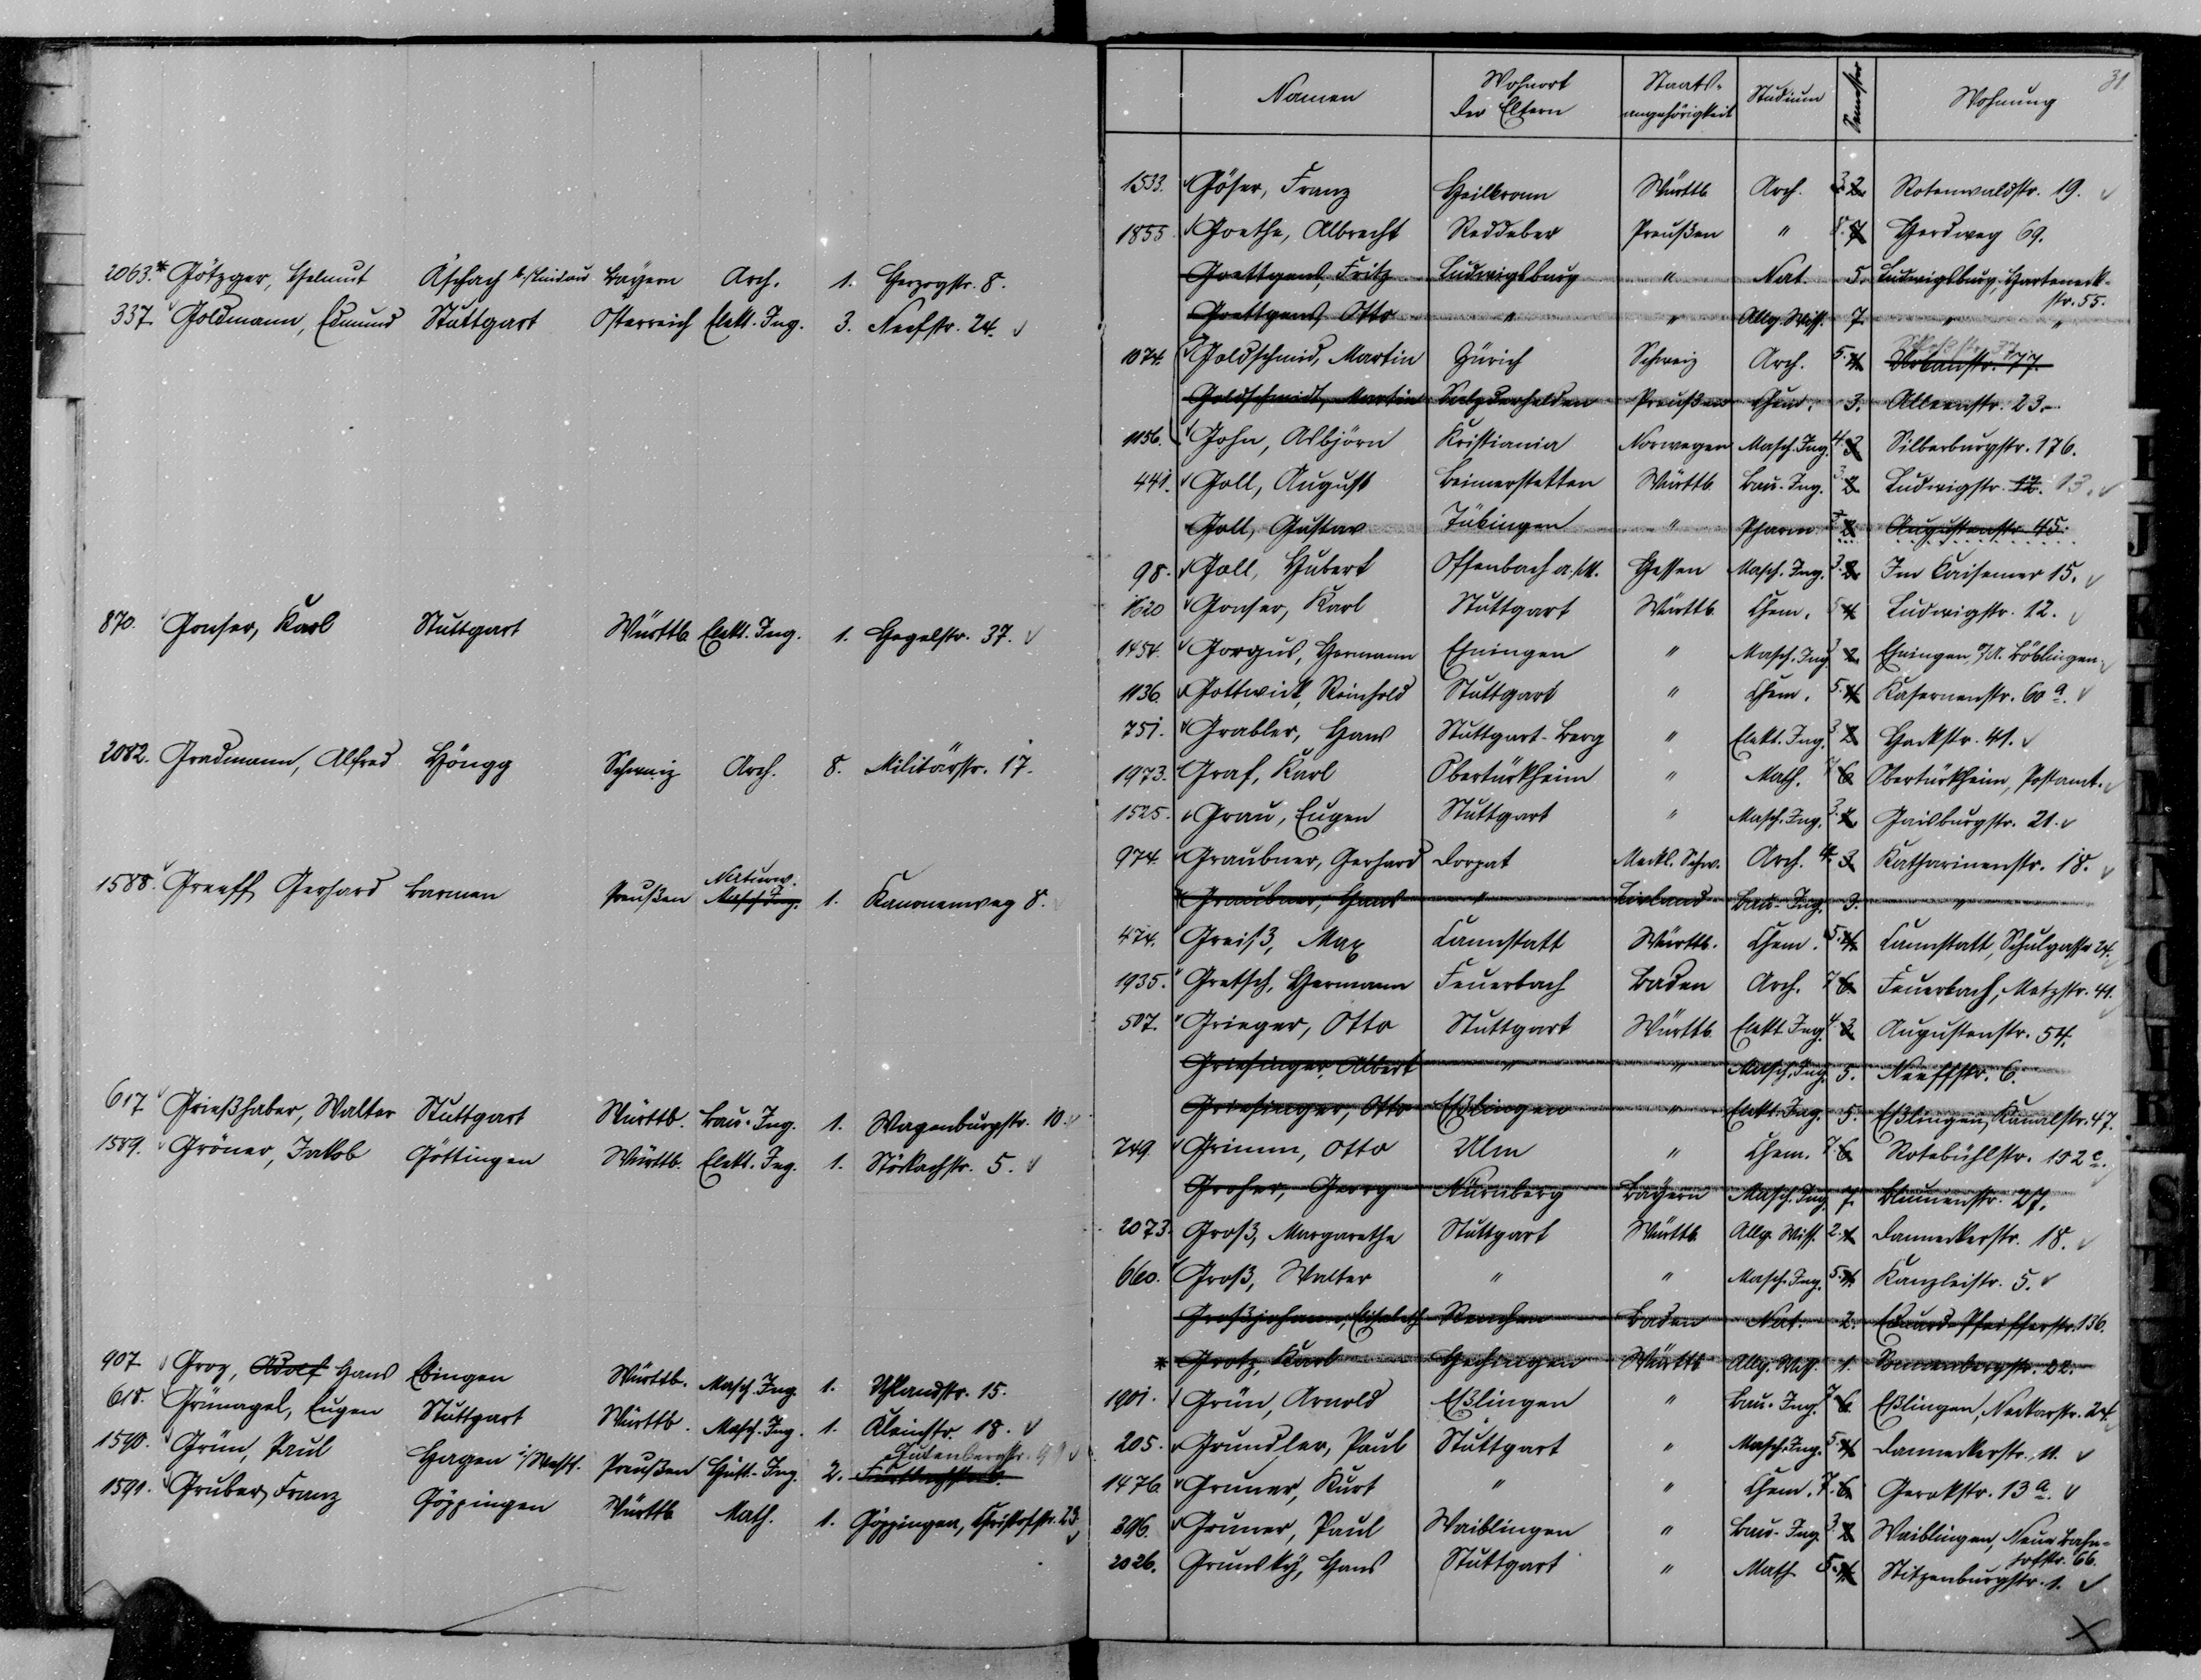 2063.* Götzger, Helmut Äschach b/Lindau Bayern Arch. 1. Herzogstr. 8.
337. Goldmann, Edmund Stuttgart Österreich Elekt. Ing. 3. Neefstr. 24.
870. Gonser, Karl Stuttgart Württb. Elekt. Ing. 1. Hegelstr. 37.
2082. Gradmann, Alfred Höngg Schweiz Arch. 8. Militärstr. 17.
Naturw.
1588. Greeff Gerhard Barmen Preußen Masch. Ing. 1. Kanonenweg 8.
617 Grießhaber, Walter Stuttgart Württb. Bau-Ing. 1. Wagenburgstr. 10.
1589. Gröner, Jakob Göttingen Württb. Elekt. Ing. 1. Stöckachstr. 5.
907 Groz, Adolf Hans Ebingen Württb. Masch. Ing. 1. Uhlandstr. 15.
618. Grünagel, Eugen Stuttgart Württb. Masch. Ing. 1. Kleinstr. 18.
Gutenbergstr.
1590. Grün, Paul Hagen i/Westf. Preußen Hütt.-Ing. 2.
1591. Gruber, Franz Göppingen Württb Math. 1. Göppingen, Christofstr. 23
31
Namen Wohnort der Eltern Staatsangehörigkeit Studium Semester Wohnung
1533. Göser, Franz Heilbronn Württb. Arch. 3. 2. Rotenwaldstr. 19.
1855 Goethe, Albrecht Reddeber Preußen " 8. 7 Herdweg 69.
Goettgens, Fritz Ludwigsburg " Nat. 5. Ludwigsburg, Harteneck-
str. 55.
Goettgens, Otto " " Allg. Wiss. 7. " "
1074. Goldschmid, Martin Zürich Schweiz Arch. 5. 4. Urbanstr. 77.
Goldschmidt, Martin Salzderhelden Preußen Chem. 3. Alleenstr. 23.
1156. Gohn, Asbjörn Kristiania Norwegen Masch. Ing. 4. 3 Silberburgstr. 176.
441. Goll, August Beimerstetten Württb. Bau-Ing. 3. 2 Ludwigstr. 12. 13.
Goll, Gustav Tübingen " Pharm. 3. 2 Augustenstr. 45.
98. Goll, Hubert Offenbach a./M. Hessen Masch. Ing. 3. 2. Im Kaisemer 15.
1620 Gonser, Karl Stuttgart Württb. Chem. 5. 4 Ludwigstr. 12.
1454. Gorgus, Hermann Ehningen " Masch. Ing. 3 2. Ehningen, O/A. Böblingen.
1136. Gottwick, Reinhold Stuttgart " Chem. 5. 4 Kasernenstr. 60 a.
751. Grabler, Hans Stuttgart-Berg " Elekt. Ing. 3 2 Hackstr. 41.
1973. Graf, Karl Obertürkheim " Math. 7 6 Obertürkheim, Postamt.
1525. Grau, Eugen Stuttgart " Masch. Ing. 3. 2. Gaisburgstr. 21.
974. Graubner, Gerhard Dorpat Meckl. Schw. Arch. 4. 3. Katharinenstr. 18.
Graubner, Hans " Livland Bau-Ing. 3. "
474. Greiß, Max Cannstatt Württb. Chem. 5. 4. Cannstatt, Schulgasse 24.
1935. Gretsch, Hermann Feuerbach Baden Arch. 7 6. Feuerbach, Metzstr. 41.
507. Grieger, Otto Stuttgart Württb. Elekt. Ing. 4. 3 Augustenstr. 54.
Griesinger, Albert " " Masch. Ing. 5. Neeffstr. 6.
Griesinger, Otto Eßlingen " Elekt. Ing. 5. Eßlingen, Kanalstr. 47.
749 Grimm, Otto Ulm " Chem. 7. 6 Rotebühlstr. 152 c.
Groher, Georg Nürnberg Bayern Masch. Ing. 7. Blumenstr. 27.
2073. Groß, Margarethe Stuttgart Württb. Allg. Wiss. 2. 1 Danneckerstr. 18.
660. Groß, Walter " " Masch. Ing. 5. 4. Kanzleistr. 5.
Großjohann, Elisabeth Renchen Baden Nat. 2. Eduard-Pfeifferstr. 136.
* Grotz, Karl Hechingen Württb. Allg. Wiss. 1. Sonnenbergstr. 22.
1901. Grün, Arnold Eßlingen " Bau-Ing. 7 6 Eßlingen, Neckarstr. 24.
205. Grundler, Paul Stuttgart " Masch. Ing. 5. 4 Danneckerstr. 11.
1476 Gruner, Kurt " " Chem. 7. 6. Gerokstr. 13 a.
396. Gruner, Paul Waiblingen " Bau-Ing. 3. 2 Waiblingen, Neue Bahn-
hofstr. 66.
2026. Grunsky, Hans Stuttgart " Math 5. 4. Stitzenburgstr. 1.
I
J
K
L
M
N
O
P
R
S
T